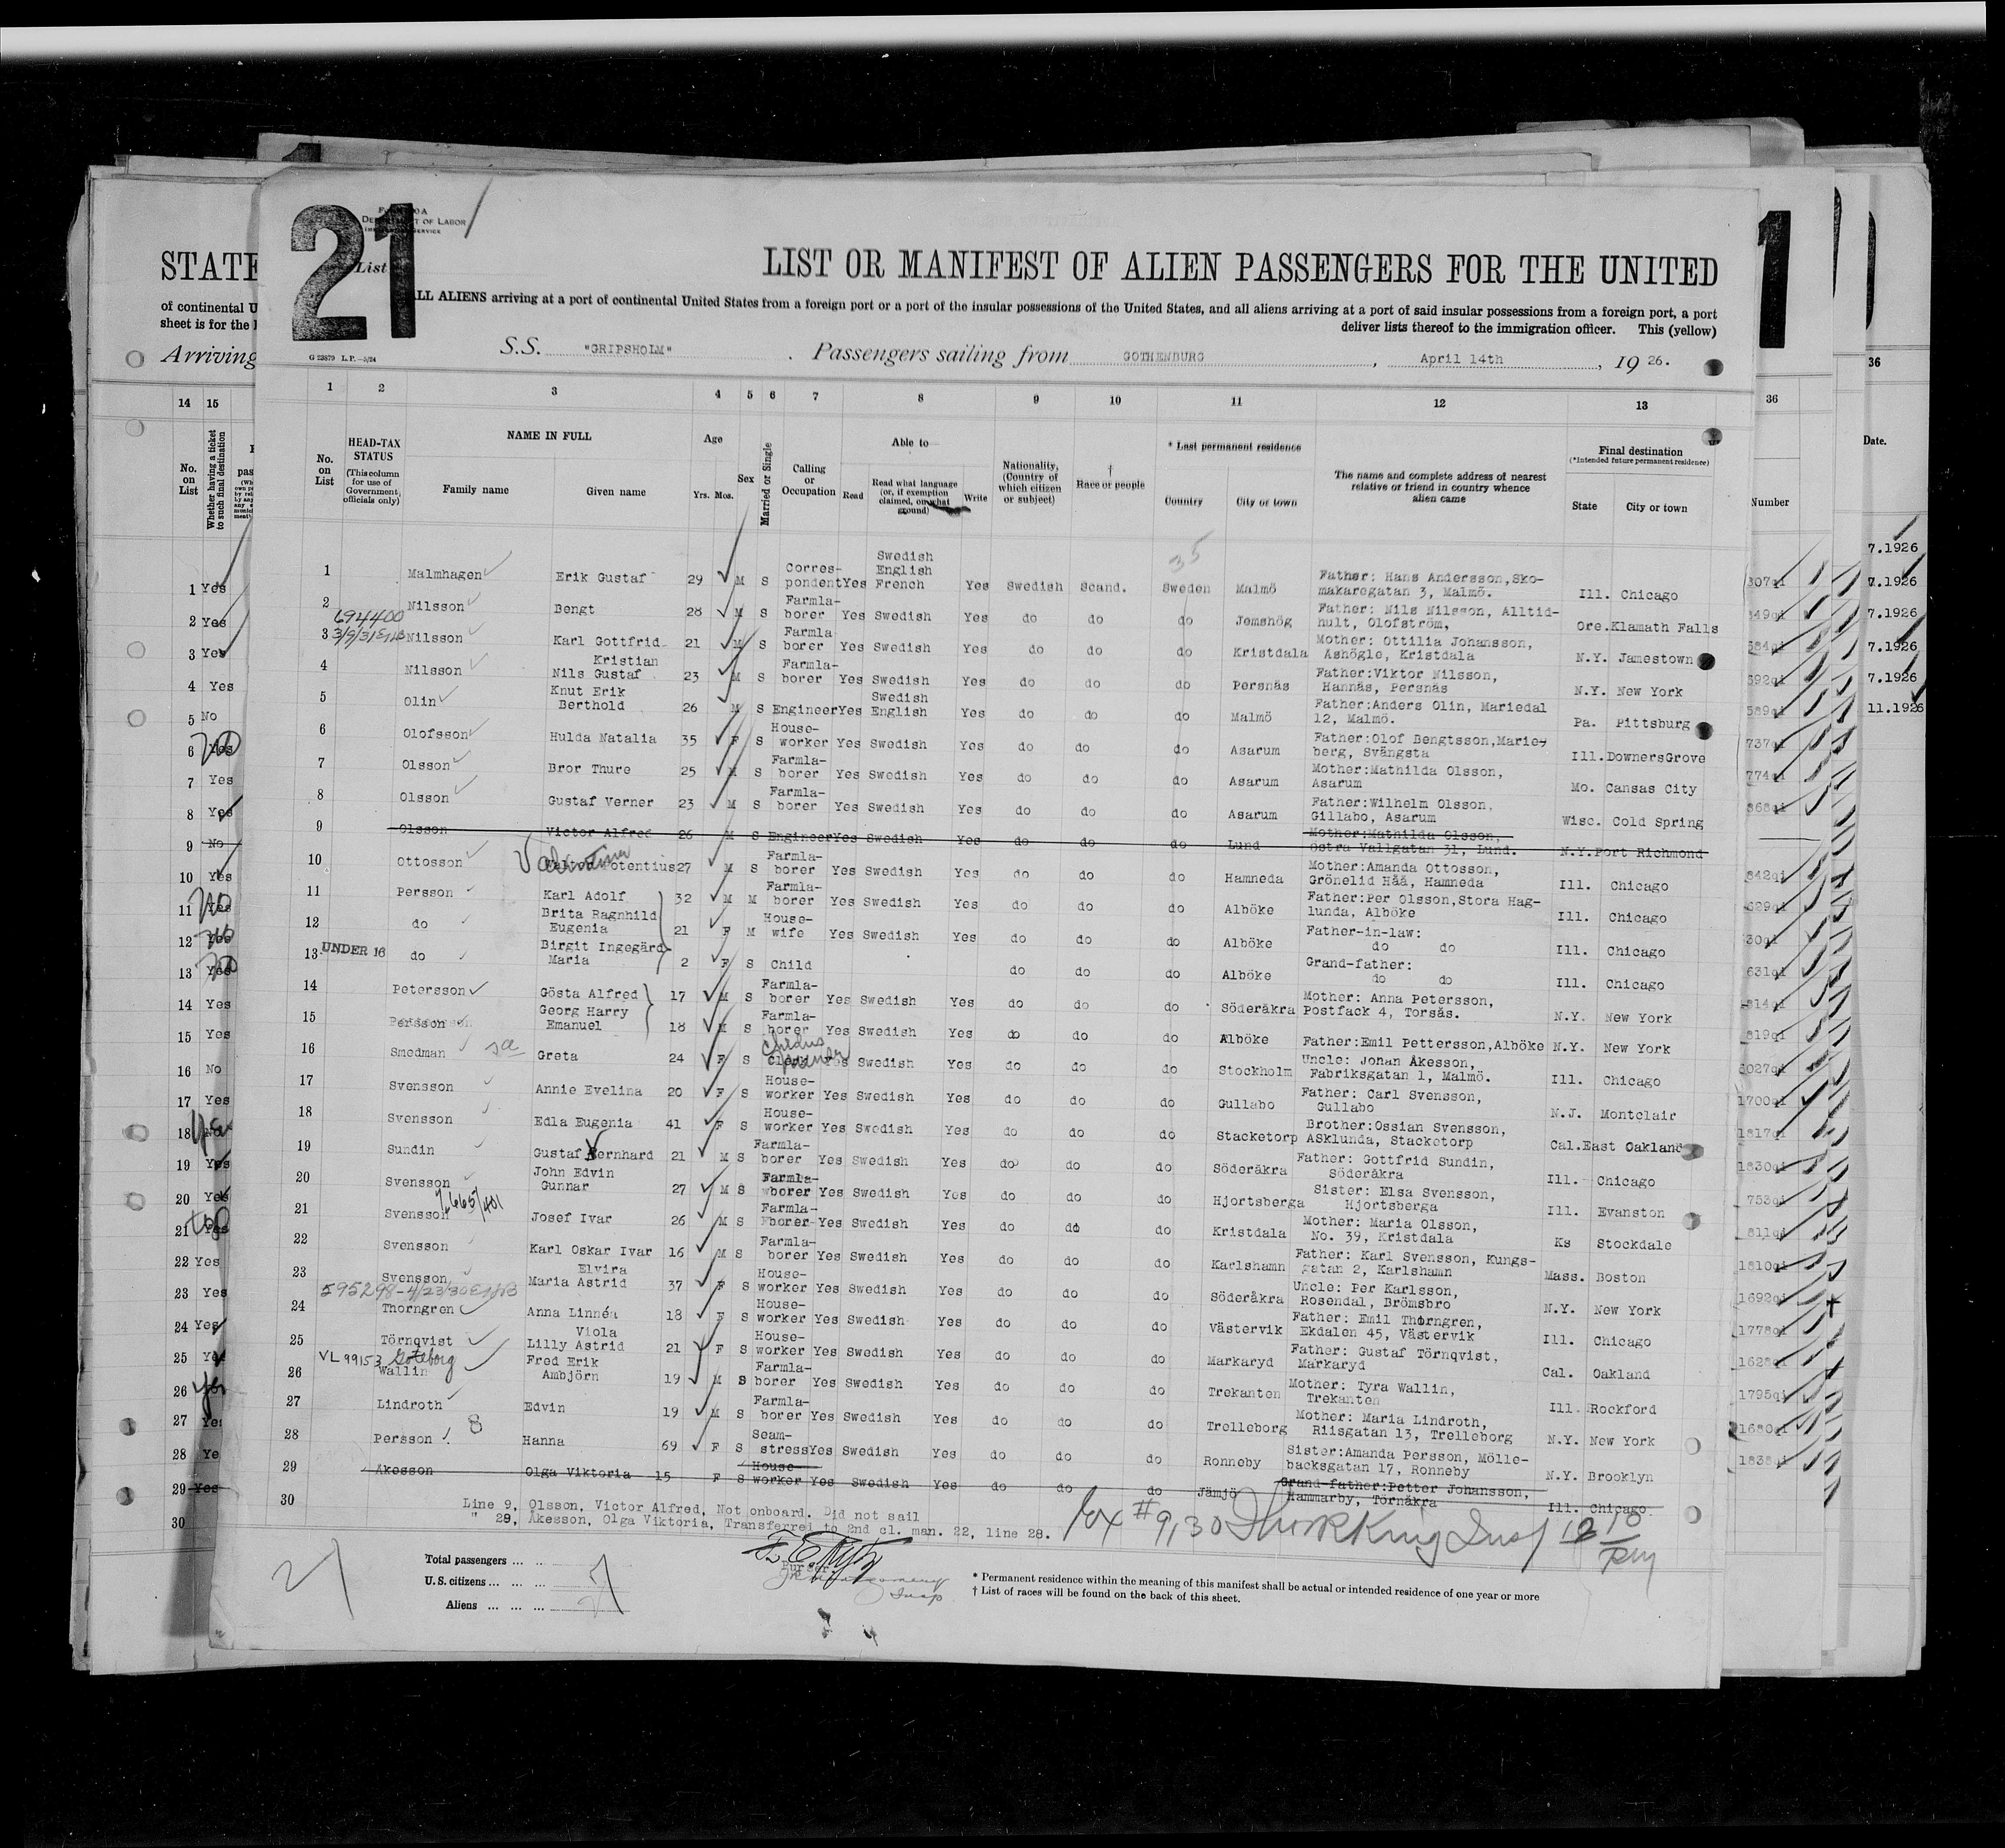 21
DEPARTMENT OF LABOR
List
LIST OR MANIFEST OF ALIEN PASSENGERS FOR THE UNITED
ALL ALIENS arriving at a port of continental United States from a foreign port or a port of the insular possessions of the United States, and all aliens arriving at a port of said insular possessions from a foreign port, a port
deliver lists thereof to the immigration officer. This (yellow)
S.S. "GRIPSHOLM" . Passengers sailing from GOTHENBURG , April 14th , 19 26.
1 2 3 4 5 6 7 8 9 10 11 12 13
No. on List
HEAD-TAX STATUS
(This column for use of Government officials only)
NAME IN FULL
Family name Given name
Age
Yrs. Mos.
Sex
Married or Single
Calling or Occupation
Able to
Read
Read what language (or, if exemption claimed, on what ground)
Write
Nationality, (Country of which citizen or subject)
† Race or people
* Last permanent residence
Country City or town
The name and complete address of nearest relative or friend in country whence alien came
Final destination
(*Intended future permanent residence)
State City or town
35
1 Malmhagen Erik Gustaf 29 M S Correspondent Yes Swedish English French Yes Swedish Scand. Sweden Malmö Father: Hans Andersson, Skomakaregatan 3, Malmö. Ill. Chicago
2 Nilsson Bengt 28 M S Farmlaborer Yes Swedish Yes do do do Jemshög Father: Nils Nilsson, Alltidhult, Olofström, Ore. Klamath Falls
694400
3 Nilsson Karl Gottfrid 21 M S Farmlaborer Yes Swedish Yes do do do Kristdala Mother: Ottilia Johansson, Ashögle, Kristdala N.Y. Jamestown
4 Nilsson Kristian Nils Gustaf 23 M S Farmlaborer Yes Swedish Yes do do do Persnäs Father:Viktor Nilsson, Hannäs, Persnäs N.Y. New York
5 Olin Knut Erik Berthold 26 M S Engineer Yes Swedish English Yes do do do Malmö Father:Anders Olin, Mariedal 12, Malmö. Pa. Pittsburg
6 Olofsson Hulda Natalia 35 F S Houseworker Yes Swedish Yes do do do Asarum Father:Olof Bengtsson,Marieberg, Svängsta Ill. DownersGrove
7 Olsson Bror Thure 25 M S Farmlaborer Yes Swedish Yes do do do Asarum Mother:Mathilda Olsson, Asarum Mo. Cansas City
8 Olsson Gustaf Verner 23 M S Farmlaborer Yes Swedish Yes do do do Asarum Father:Wilhelm Olsson, Gillabo, Asarum Wisc. Cold Spring
9 Olsson Victor Alfred 26 M S Engineer Yes Swedish Yes do do do Lund Mother:Mathilda Olsson, Östra Vallgatan 31, Lund. N.Y. Port Richmond
10 Ottosson Potentius 27 M S Farmlaborer Yes Swedish Yes do do do Hamneda Mother:Amanda Ottosson, Grönelid Håå, Hamneda Ill. Chicago
11 Persson Karl Adolf 32 M M Farmlaborer Yes Swedish Yes do do do Alböke Father:Per Olsson,Stora Haglunda, Alböke Ill. Chicago
12 do Brita Ragnhild Eugenia 21 F M Housewife Yes Swedish Yes do do do Alböke Father-in-law: do do Ill. Chicago
UNDER 16
13 do Birgit Ingegärd Maria 2 F S Child do do do Alböke Grand-father: do do Ill. Chicago
14 Petersson Gösta Alfred 17 M S Farmlaborer Yes Swedish Yes do do do Söderåkra Mother: Anna Petersson, Postfack 4, Torsås. N.Y. New York
15 Georg Harry Emanuel 18 M S Farmlaborer Yes Swedish Yes do do do Alböke Father:Emil Pettersson,Alböke N.Y. New York
16 Smedman Greta 24 F S Yes Swedish Yes do do do Stockholm Uncle: Johan Åkesson, Fabriksgatan 1, Malmö. Ill. Chicago
17 Svensson Annie Evelina 20 F S Houseworker Yes Swedish Yes do do do Gullabo Father: Carl Svensson, Gullabo N.J. Montclair
18 Svensson Edla Eugenia 41 F S Houseworker Yes Swedish Yes do do do Stacketorp Brother:Ossian Svensson, ASklunda, Stacketorp Cal. East Oakland
19 Sundin Gustaf Bernhard 21 M S Farmlaborer Yes Swedish Yes do do do Söderåkra Father: Gottfrid Sundin, Söderåkra Ill. Chicago
20 Svensson John Edvin Gunnar 27 M S Farmlaborer Yes Swedish Yes do do do Hjortsberga Sister: Elsa Svensson, Hjortsberga Ill. Evanston
21 Svensson Josef Ivar 26 M S Farmlaborer Yes Swedish Yes do do do Kristdala Mother: Maria Olsson, No. 39, Kristdala Ks Stockdale
22 Svensson Karl Oskar Ivar 16 M S Farmlaborer Yes Swedish Yes do do do Karlshamn Father: Karl Svensson, Kungsgatan 2, Karlshamn Mass. Boston
23 Svensson Elvira Maria Astrid 37 F S Houseworker Yes Swedish Yes do do do Söderåkra Uncle: Per Karlsson, Rosendal, Brömsbro N.Y. New York
24 Thorngren Anna Linnéa 18 F S Houseworker Yes Swedish Yes do do do Västervik Father: Emil Thorngren, Ekdalen 45, Västervik Ill. Chicago
25 Törnqvist Viola Lilly Astrid 21 F S Houseworker Yes Swedish Yes do do do Markaryd Father: Gustaf Törnqvist, Markaryd Cal. Oakland
VL 99153 Göteborg
26 Wallin Fred Erik Ambjörn 19 M S Farmlaborer Yes Swedish Yes do do do Trekanten Mother: Tyra Wallin, Trekanten Ill. Rockford
27 Lindroth Edvin 19 M S Farmlaborer Yes Swedish Yes do do do Trelleborg Mother: Maria Lindroth, Riisgatan 13, Trelleborg N.Y. New York
28 Persson 8 Hanna 69 F S Seamstress Yes Swedish Yes do do do Ronneby Sister:Amanda Persson, Möllebacksgatan 17, Ronneby N.Y. Brooklyn
29 Åkesson Olga Viktoria 15 F S Houseworker Yes Swedish Yes do do do Jämjö Grand-father:Petter Johansson, Hammarby, Törnåkra Ill. Chicago
30 Line 9, Olsson, Victor Alfred, Not onboard. Did not sail
" 29, Åkesson, Olga Viktoria, Transferred to 2nd cl. man. 22, line 28.
Total passengers
U.S. citizens
Aliens
Purser
* Permanent residence within the meaning of this manifest shall be actual or intended residence of one year or more
† List of races will be found on the back of this sheet.
STATE
of continental U
sheet is for the
Arriving
14 15
No. on List
Whether having a ticket to such final destination
1 Yes
2 Yes
3 Yes
4 Yes
5 No
6
7 Yes
8 Yes
9 No
10 Yes
11
12
13
14 Yes
15 Yes
16 No
17 Yes
18
19 Yes
20 Yes
21
22 Yes
23 Yes
24 Yes
25 Yes
26 Yes
27 Yes
28 Ye
29 Yes
30
36
Number
36
Date.
7.1926
7.1926
7.1926
7.1926
7.1926
11.1926